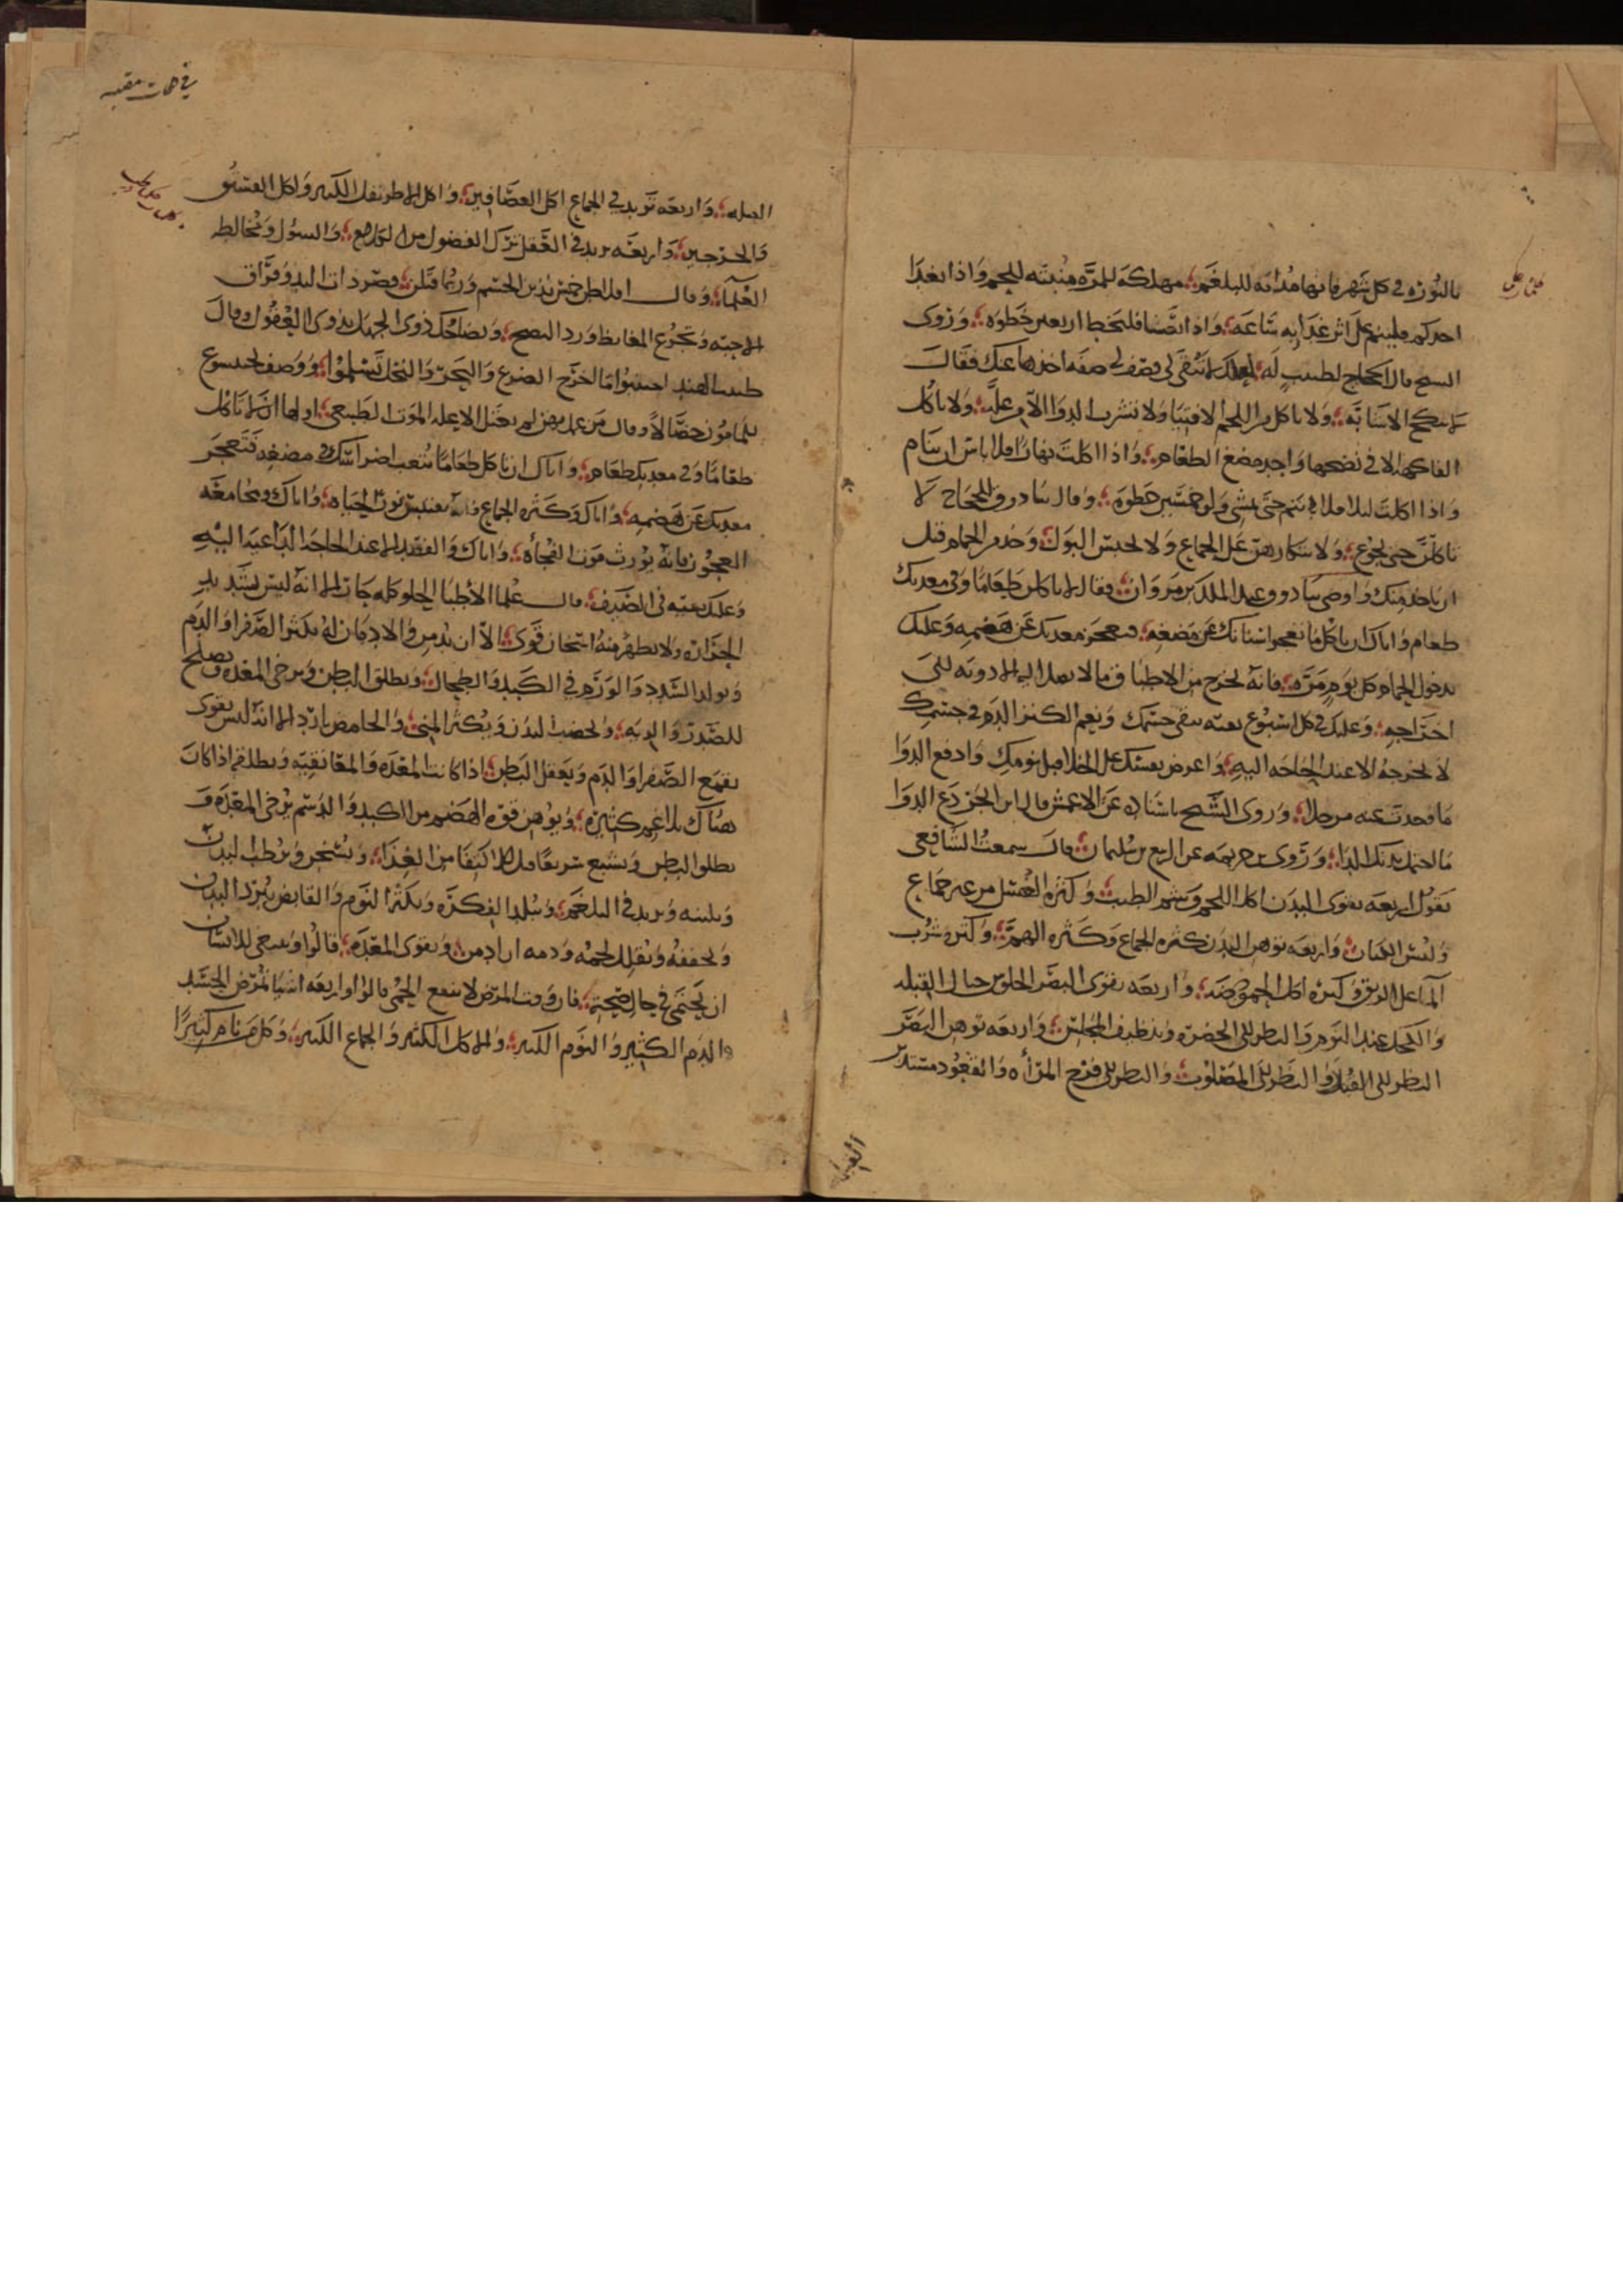 بالنورة في كل شهر فانها مذابه للبلغم مهلكة للمرة منبته للحم واذا تغدا
احدكم فلينم على اثر غدايه ساعه واذا تعشا فليخط اربعين خطوه وروى
الشيخ قال الحجاج لطبيب له لعلك لا تبقى لي فصف لي صفه اخذها عنك فقال
لا تنكح الا شابة ولا تاكل من اللحم الا فتيا ولا تشرب الدوا الا من علة ولا تاكل
الفاكهة الا في نضجها واجد مضغ الطعام واذا اكلت نهارا فلا باس ان تنام
واذا اكلت ليلا فلا تنم حتى تمشي ولو خمسين خطوة وقال تيادوق للحجاج لا
تاكلن حتى تجوع ولا تتكارهن على الجماع ولا تحبس البول وخذ من الحمام قبل
ان ياخذ منك واوصى تيادوق عبد الملك بن مروان فقال لا تاكلن طعاما وفي معدتك
طعام واياك ان تاكل ما تعجز اسنانك عن مضغه فتعجز معدتك عن هضمه وعليك
بدخول الحمام كل يوم مرة فانه يخرج من الاطباق ما لا يصل اليه الادويه الى
اخراجه وعليك في كل اسبوع بقيه تنقي جسمك ونعم الكنز الدم في جسمك
لا تخرجه الا عند الحاجه اليه واعرض نفسك على الخلا قبل نومك وادفع الدوا
ما وجدت عنه مرحلا وروى الشيخ باسناده عن الاعمش قال ابن ابجر دع الدوا
ما احتمل بدنك الدا وروى عن الربيع بن سليمان قال سمعت الشافعي
يقول اربعه تقوى البدن اكل اللحم وشم الطيب وكثرة الغسل من غير جماع
ولبس الكتان واربعه توهن البدن كثره الجماع وكثره الهم وكثره شرب
الما على الريق وكثره اكل الحموضه واربعه تقوى البصر الجلوس حيال القبله
والكحل عند النوم والنظر الى الخضره وتنظيف المجلس واربعه توهن البصر
النظر الى القذر والنظر الى المصلوب والنظر الى فرج المرأه والقعود مستدبر
القبله واربعه تزيد في الجماع اكل العصافير واكل الاطريفل الكبير واكل الفستق
والجرجير واربعه تزيد في العقل ترك الفضول من الكلام والسؤل ومخالطه
العلما وقال افلاطن خمس يذبن الجسم وربما قتلن قصر ذات اليد وفراق
الاحبه وتجرع المغايظ ورد النصح وتضاحك ذوى الجهل بذوى العقول وقال
طبيب الهند احتنبوا الضرع والبحر والنخل تسلموا ووصف بختيسوع
للمامون خصالا وقال من عمل بهن لم يعتل الا عله الموت الطبيعي اولها ان لا تاكل
طعاما وفي معدتك طعام واياك ان تاكل طعاما تتعب اضراسك في مضغه فتعجز
معدتك عن هضمه واياك وكثره الجماع فانه يقتبس نور الحياه واياك ومجامعه
العجوز فانه يورث موت الفجأة واياك والفصد الا عند الحاجه الداعيه اليه
وعليك بقيه في الصيف قال علما الأطبا الحلو كله حار الا انه ليس بشديد
الحرارة ولا يظهر منه اسخان قوى الا ان يدمن والادمان له يكثر الصفرا والدم
ويولد السدد والورم في الكبد والطحال ويطلق البطن ويرخي المعده ويصلح
للصدر والريه ويخصب البدن ويكثر المني والحامض بارد الا انه ليس بقوى
يقمع الصفرا والدم ويعقل البطن اذا كانت المعده والمعا نقيه ويطلقه اذا كان
هناك بلاغم كثيرة ويوهن قوه الهضم من الكبد والدسم يرخي المعدة و
يطلق البطن ويشبع سريعا قبل الاكتفا من الغذا ويسخن ويرطب البدن
ويلينه ويزيد في البلغم ويبلد الفكره ويكثر النوم والقابض يبرد البدن
ويجففه ويقلل لحمه ودمه ان ادمن ويقوى المعدة قالوا وينبغي للانسان
ان يحتمى في حال صحته فان وقت المرض لا ينفع الحمى قالوا واربعه اشيا تمرض الجسد
الكثير والنوم الكثير والاكل الكثير والجماع الكثير وكل من نام كثيرا